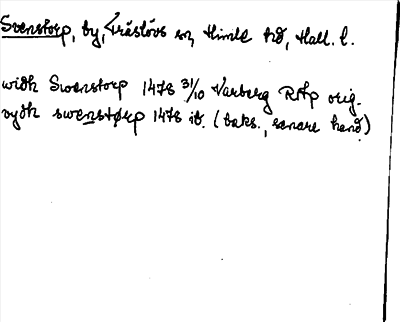 Svenstorp, by, Träslövs sn, Himle hd, Hall. l.
widh Swenstorp 1478 31/10 Varberg RAp orig.
vydh swenstørp 1478 ib. (baks., senare hand)